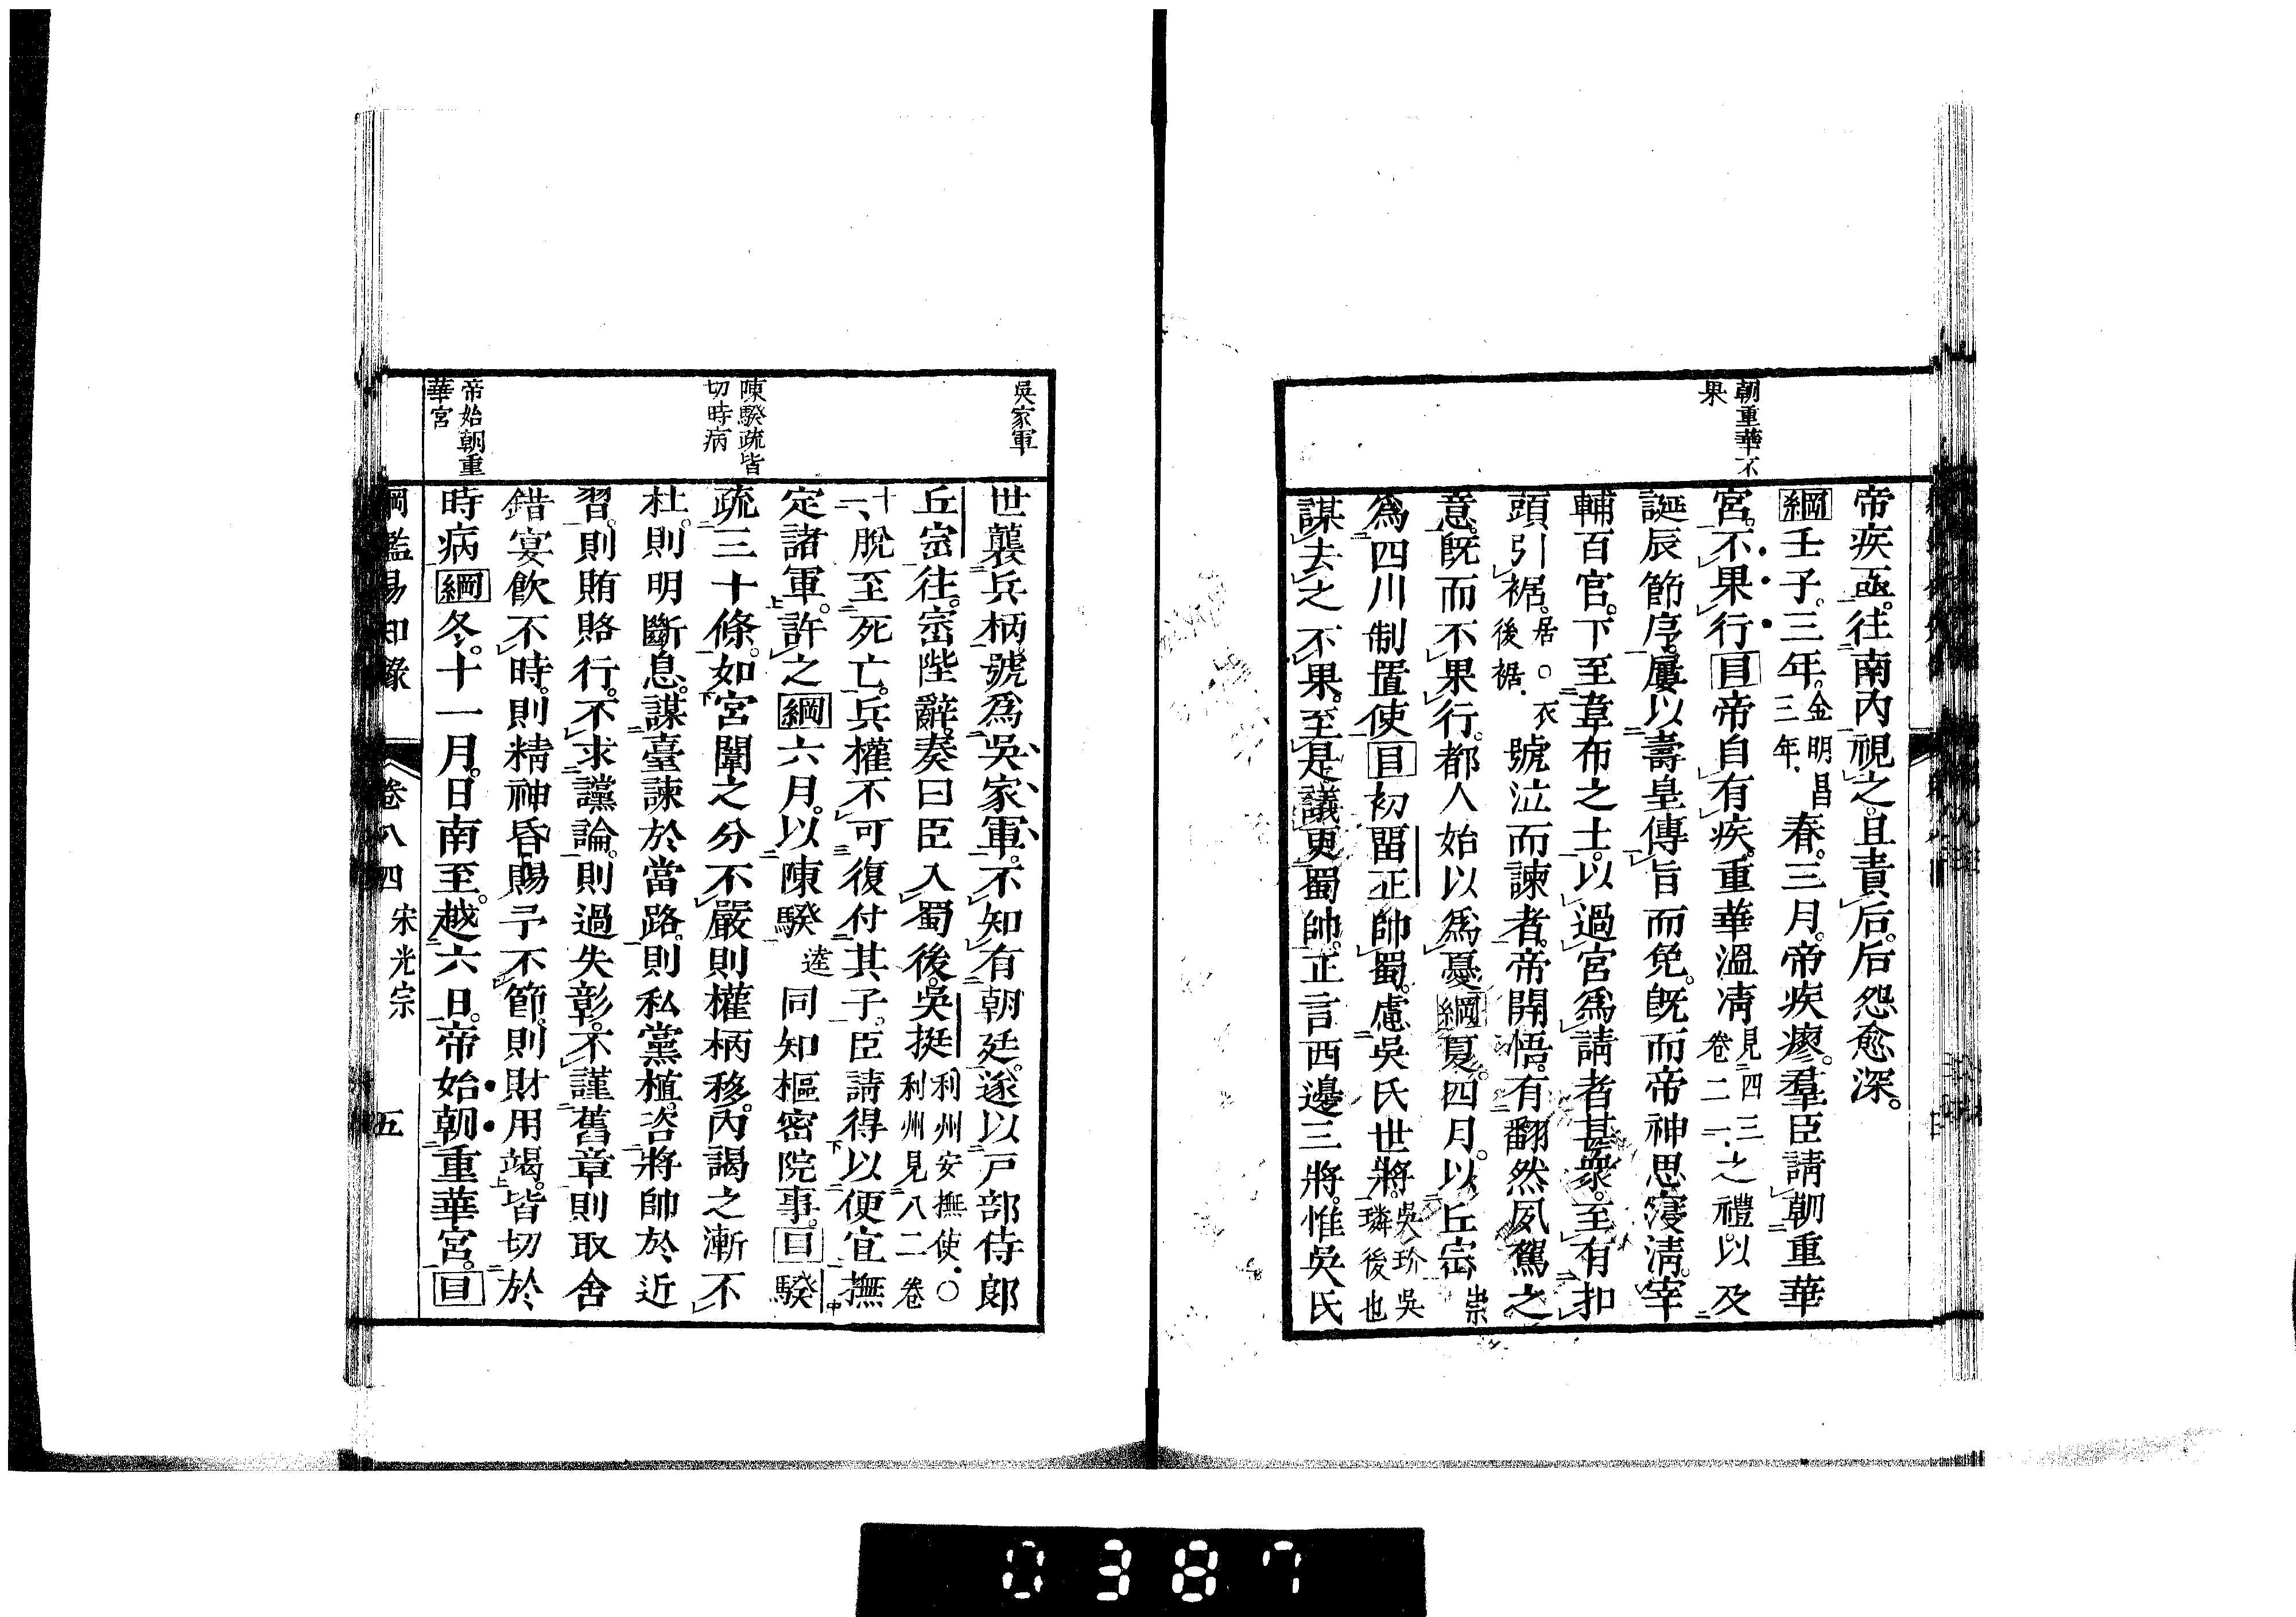 朝重華不
果
帝疾亟。往南內視之。且責后。后怨愈深。
綱壬子。三年。金明昌三年。春。三月。帝疾瘳。羣臣請朝重華
宮。不果行目帝自有疾。重華溫凊見四三卷二一。之禮。以及
誕辰節序。屢以壽皇傳旨而免。既而帝神思寖清。宰
輔百官。下至韋布之士。以過宮爲請者甚衆。至有扣
頭引裾。居。○衣後裾。號泣而諫者。帝開悟。有翻然夙駕之
意。既而不果行。都人始以爲憂綱夏。四月。以丘崈崇
爲四川制置使目初留正帥蜀。慮吳氏世將。吳玠吳璘後也
謀去之不果。至是。議更蜀帥。正言西邊三將。惟吳氏
吳家軍
陳騤疏皆
切時病
帝始朝重
華宮
世襲兵柄。號爲吳家軍。不知有朝廷。遂以戸部侍郎
丘崈往。崈陛辭。奏曰臣入蜀後。吳挺利州安撫使。○利州見八二卷
十一、脫至死亡。兵權不可復付其子。臣請得以便宜撫
定諸軍。許之綱六月。以陳騤逵同知樞密院事。目騤
疏三十條。如宮闈之分不嚴則權柄移。內謁之漸不
杜。則明斷息。謀臺諫於當路。則私黨植。咨將帥於近
習。則賄賂行。不求讜論。則過失彰。不謹舊章則取舍
錯宴飲不時。則精神昏賜予不節。則財用竭。皆切於
時病綱冬。十一月。日南至。越六日。帝始朝重華宮。目
綱鑑易知錄 卷八四 宋光宗 五
0387